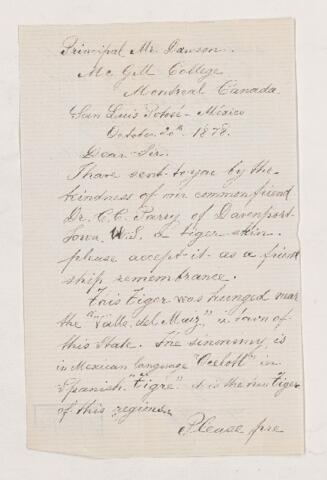 Principal Mr. Dawson.
Mc Gill College
Montreal Canada
San Luis Potosí - México
October 20th 1878.
Dear Sir.
I have sent to you by the
kindness of our common friend
Dr. C. C. Parry of Davenport
Iowa U.S. a tiger skin.
please accept it as a friend
ship remembrance.
This Tiger was hunged near
the "Valle del Maiz" a town of
this State. The sinonomy is
in Mexican language "Ocelotl" in
Spanish "Tigre" it is the true Tiger
of this regions.
Please pre